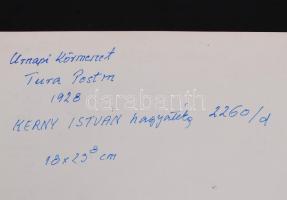 Úrnapi Körmenet
Tura Pest m
1928
KERNY ISTVÁN hagyaték 2260/d
18x23⁸ cm
darabanth